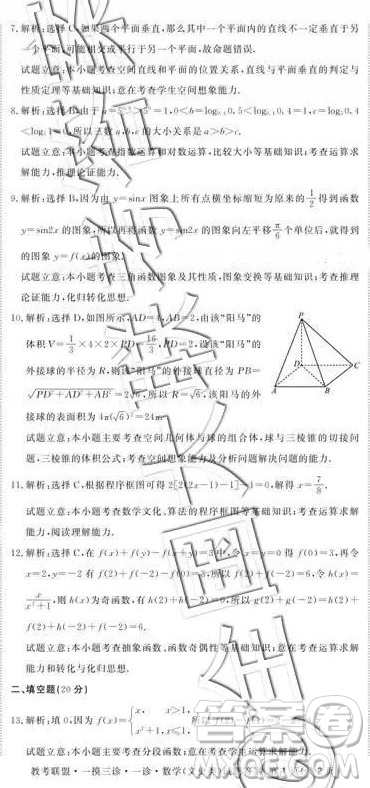 7.解析:选择C,如果两个平面垂直,那么其中一个平面内的直线不一定垂直于另
一个平面,可能相交或平行于另一个平面,故命题错误.
试题立意:本小题考查空间直线和平面的位置关系,直线与平面垂直的判定与
性质定理等基础知识;意在考查学生空间想象能力.
8.解析:选择B,由于
=1,0<b=log 0.5<log 0.4=1,c=log 0.4
<log 1=0,所以三数a,b,c的大小关系是a>b>c.
试题立意:本小题考查指数运算和对数运算,比较大小等基础知识;考查运算求
解能力,推理论证能力.
9.解析:选择B,因为由y=sinx图象上所有点横坐标缩短为原来的1/2得到函数
y=sin2x的图象,所以再将函数y=sin2x的图象向左平移π/6个单位后,就得到
的图象y=f(x)的图象.
试题立意:本小题考查三角函数图象及其性质,图象变换等基础知识;考查推理
论证能力,化归转化思想.
10.解析:选择D,如图所示,AD=4,AB=2,由该“阳马”的
体积V=1/3×4×2×PD=16/3,PD=2,设该“阳马”的
外接球的半径为R,该阳马的外接球直径为PB=
√PD²+AD²+AB²=2√6,所以R=√6,该阳马的外
接球的表面积为4π(√6)²=24π.
P
D
C
A
B
试题立意:本小题主要考查空间几何体与球的组合体,球与三棱锥的切接问
题,三棱锥的体积公式;考查空间想象能力及分析问题解决问题的能力.
11.解析:选择C,根据程序框图可得2[2(2x-1)-1]-1=0,解得x=7/8.
试题立意:本小题考查数学文化、算法的程序框图等基础知识;考查运算求解
能力,阅读理解能力.
12.解析:选择C,在f(x)+f(y)-f(x+y)=3中,令x=y=0得f(0)=3,再令
x=2,y=-2有f(2)+f(-2)-f(0)=3,所以f(2)+f(-2)=6,令h(x)=
x/x²+1,则h(x)为奇函数,有h(2)+h(-2)=0,所以g(2)+g(-2)=h(2)+
f(2)+h(-2)+f(-2)=6.
试题立意:本小题考查抽象函数、函数奇偶性等基础知识;意在考查运算求解
能力和转化与化归思想.
二、填空题(20分)
13.解析:填0,因为f(x)={x, x>1, x²+1,x≤1,
所以f(2)
试题立意:本小题主要考查分段函数;意在考查学生运算求解能力.
教考联盟·一摸三诊·一诊·数学(文史类)